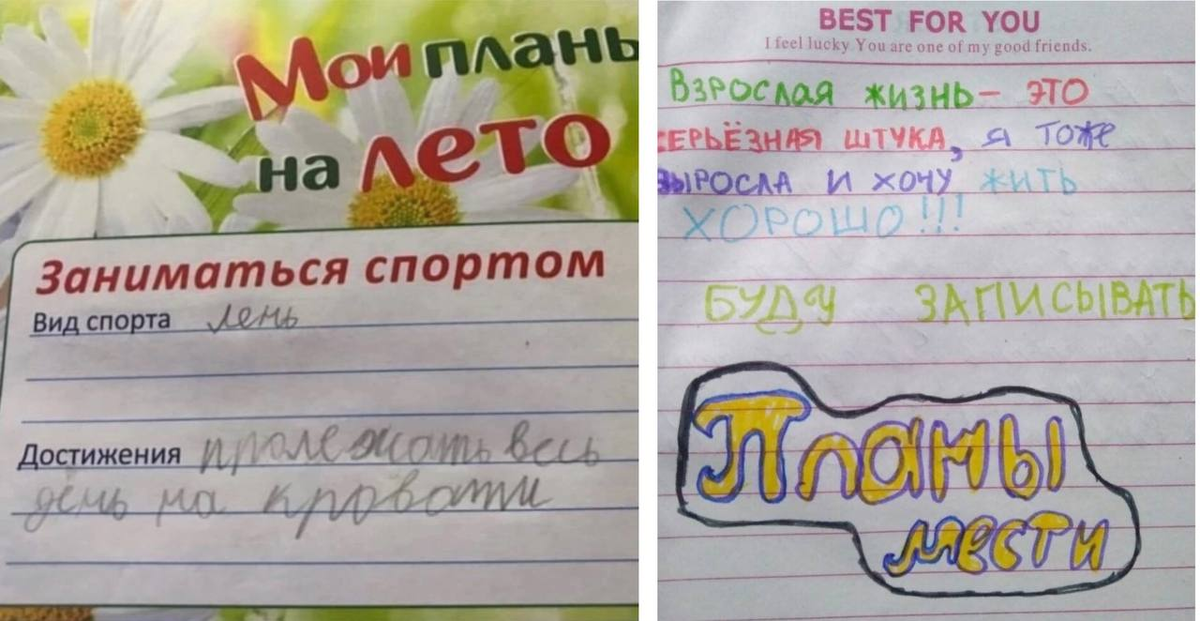 Мои планы
на лето
Заниматься спортом
Вид спорта лень
Достижения пролежать весь
день на кровати
BEST FOR YOU
I feel lucky. You are one of my good friends.
ВЗРОСЛАЯ ЖИЗНЬ - ЭТО
СЕРЬЁЗНАЯ ШТУКА, Я ТОЖЕ
ВЫРОСЛА И ХОЧУ ЖИТЬ
ХОРОШО!!!
БУДУ ЗАПИСЫВАТЬ
Планы
мести